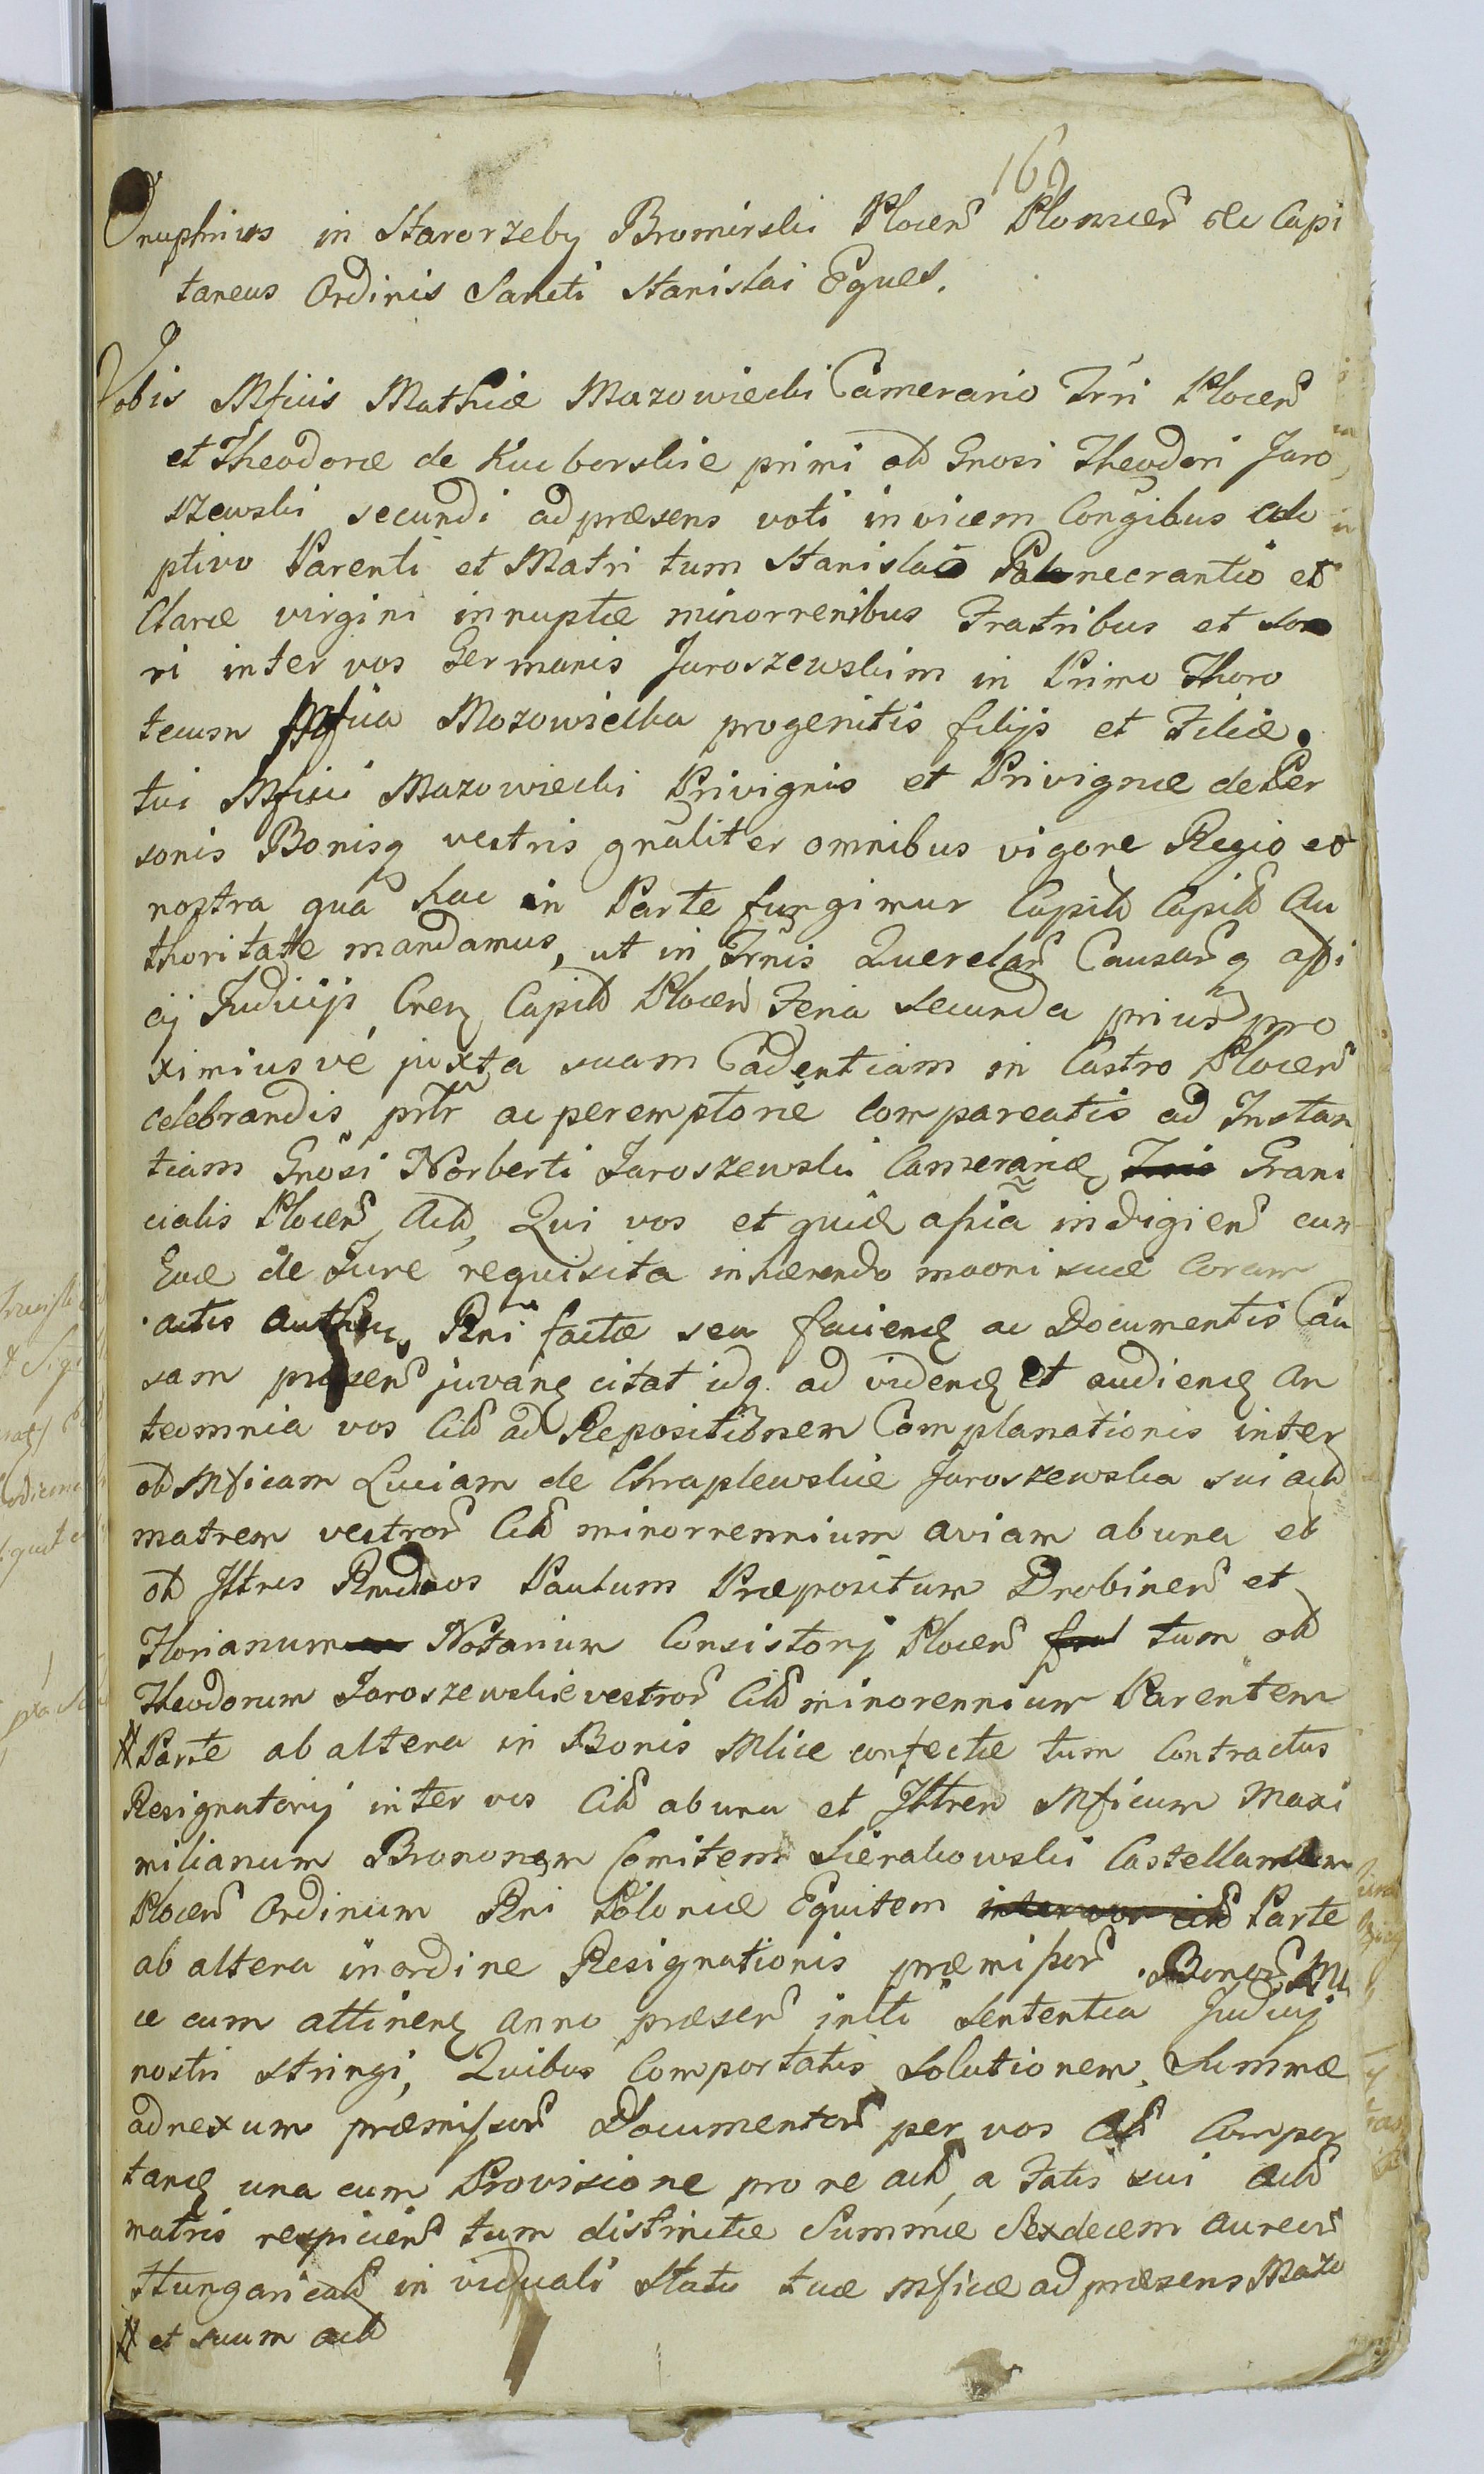 160
Onuphrius in Starorzeby Bromirski Plocen Plonscen &c Capi
taneus Ordinis Sancti Stanislai Eques.
Vobis Mficis Mathiæ Mazowiecki Camerario Trri Plocen
et Theodoræ de Kucborskie primi olim Gnosi Theodori Jaro
szewski secundi ad præsens voti invicem Conjgibus ado
ptivo Parenti et Matri tum Stanislao Pancrantio et
Claræ virgini innuptæ minorrenibus Fratribus et Soro
ri inter vos Germanis Jaroszewskim in Primo Thoro
tecum Mfica Mozowiecka progenitis filijs et Filiæ.
tui Mfici Mazowiecki Privignis et Privignæ de Per
sonis Bonisq vestris gnaliter omnibus vigore Regio et
nostra qua hac in Parte fungimur Capitli Capitli Au
thoritate mandamus, ut in Trnis Querelar Causarq offi
cij Judicijs Cren Capitli Plocen Feria Secunda prius pro
ximiusve juxta suam Cadentiam in Castro Plocen
celebrandis prtr ac peremptorie Compareatis ad Instan
tiam Gnosi Norberti Jaroszewski Camerariæ Grani
cialis Plocen Act, Qui vos et quid affia indigien cun
Eue de Jure requisita inhærendo maori suæ Coram
actis Authen Rni factæ seu faciend ac Documentis Cau
sam præsen juvang citat idq. ad vidend et audiend An
teomnia vos Cit ad Repositionem Complanationis inter
olim Mficam Luciam de Chraplewskie Jaroszewska sui act
matrem vestror Cit minorrennium aviam ab una et
olim Illtres Rndos Paulum Præpositum Drobinen et
Florianum Notarium Consistorij Plocen tum olim
Theodorum Jaroszewskie vestror Cit minorennium Parentem
# Parte ab altera in Bonis Mlice confectæ tum Contractus
Resignatorij inter vos Cit ab una et Illtrem Mficum Maxi
milianum Brunonem Comitem Sierakowski Castellanem
Plocen Ordinum Rni Poloniæ Equitem inter vos cit Parte
ab altera in ordine Resignationis præmissor Bonor Ml
ce cum attinen anno præsen initi Sententia Judicij
nostri stringi, Quibus Comportatis Solutionem Summæ
adnexum præmissor Documentor per vos Cit Compor
tand una cum Provisione pro re act, a Fatis sui act
matris respicien tum distinctæ Summæ Sexdecem aureor
Hungarical in viduali Statu tuæ Mficæ ad præsens Mazo
# et suum act